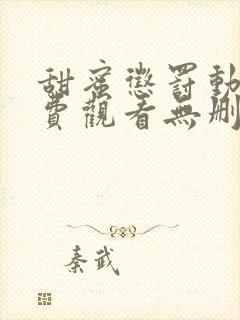 甜蜜懲罰動
費觀看無刪
秦武